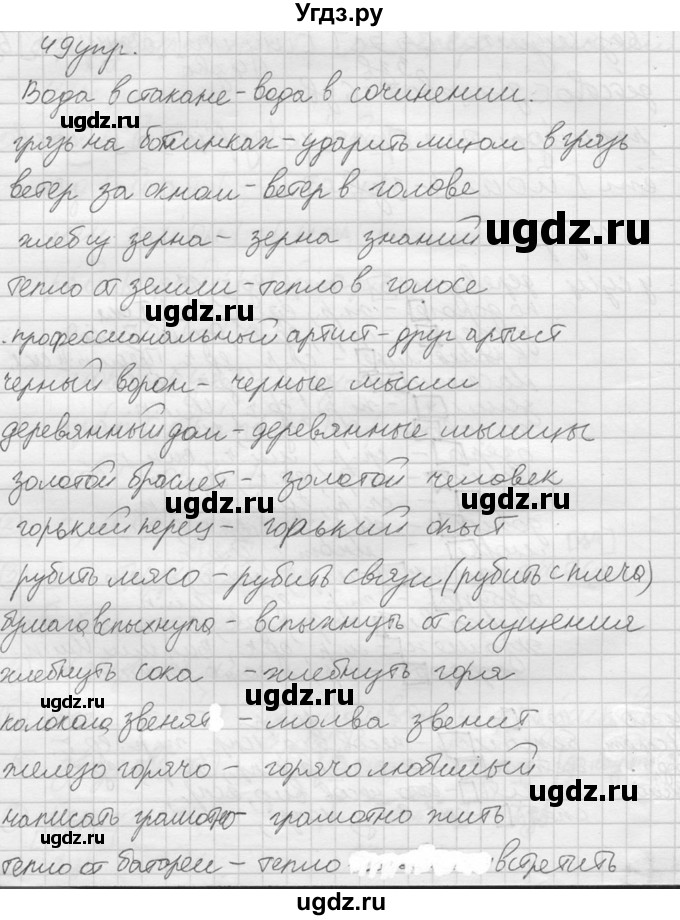 Угдз.ру
49 упр.
Вода в стакане - вода в сочинении.
ugdz.ru
грязь на ботинках - ударить лицом в грязь
ветер за окном - ветер в голове
ugdz.ru
хлеб из зерна - зерна знаний
ugdz.ru
тепло от земли - тепло в голосе
ugdz.ru
профессиональный артист - друг артист
черный ворон - черные мысли
ugdz.ru
деревянный дом - деревянные мышцы
золотой браслет - золотой человек
ugdz.ru
ugdz.ru
горький перец - горький опыт
рубить мясо - рубить связи (рубить с плеча)
бумага вспыхнула - вспыхнуть от смущения
ugdz.ru
хлебнуть сока - хлебнуть горя
ugdz.ru
ugdz.ru
колокола звенят - молва звенит
железо горячо - горячо любимый
ugdz.ru
написать грамотно - грамотно жить
ugdz.ru
тепло от батареи - тепло встретить
ugdz.ru